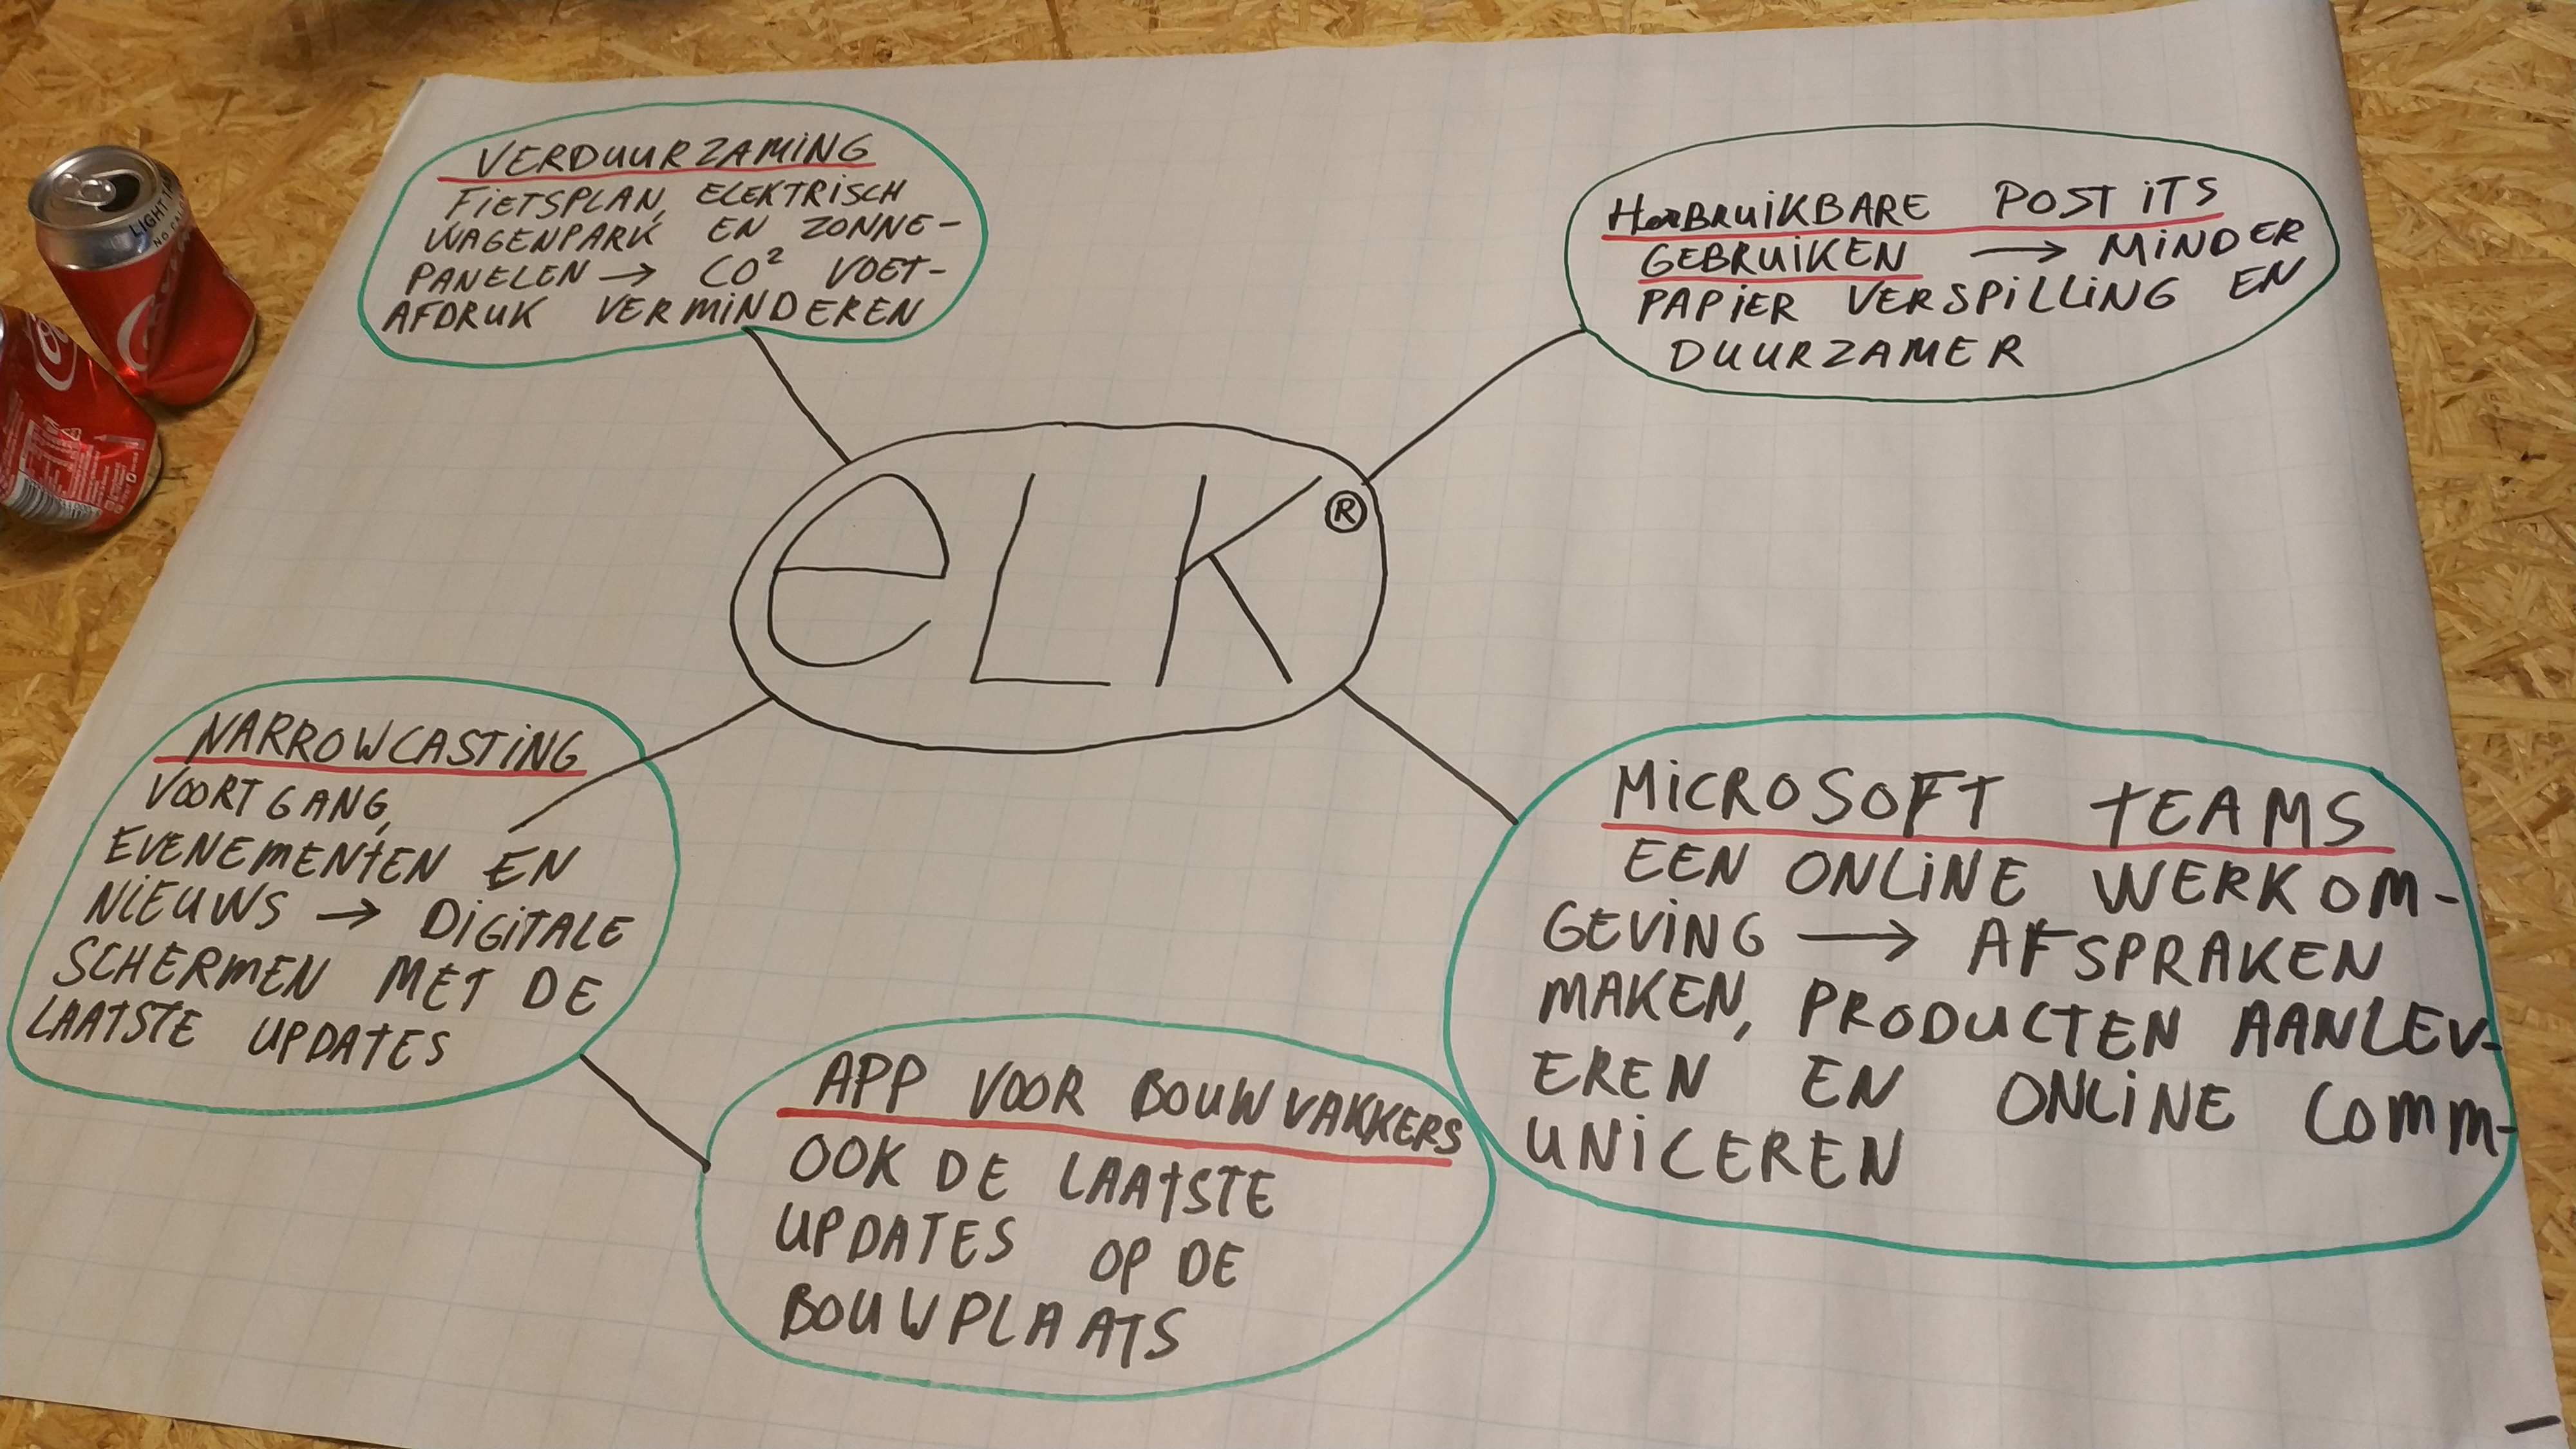 VERDUURZAMING
FIETSPLAN, ELEKTRISCH
WAGENPARK EN ZONNE-
PANELEN → CO² VOET-
AFDRUK VERMINDEREN
HERBRUIKBARE POST ITS
GEBRUIKEN → MINDER
PAPIER VERSPILLING EN
DUURZAMER
eLK ®
NARROWCASTING
VOORTGANG,
EVENEMENTEN EN
NIEUWS → DIGITALE
SCHERMEN MET DE
LAATSTE UPDATES
MICROSOFT TEAMS
EEN ONLINE WERKOM-
GEVING → AFSPRAKEN
MAKEN, PRODUCTEN AANLEV-
EREN EN ONLINE COMM-
UNICEREN
APP VOOR BOUWVAKKERS
OOK DE LAATSTE
UPDATES OP DE
BOUWPLAATS
LIGHT